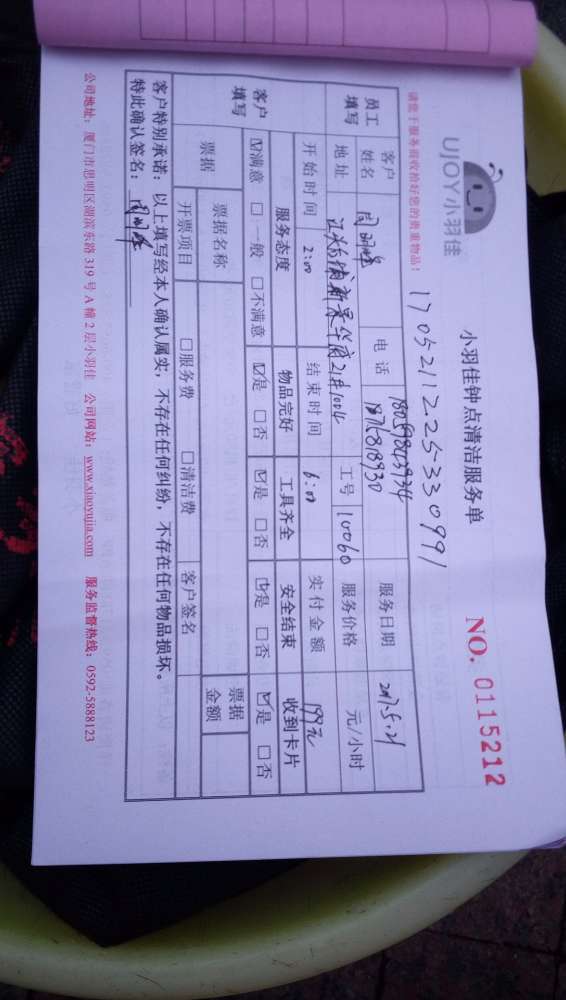 UJOY小羽佳
小羽佳钟点清洁服务单
NO. 0115212
请您于服务前收拾好您的贵重物品!
17052112253309​91
员工填写 客户姓名 电话 服务日期 2017.5.21
地址 21#1004 工号 10060 服务价格 元/小时
开始时间 2:00 结束时间 6:00 实付金额 199元
客户填写 服务态度 物品完好 工具齐全 安全结束 收到卡片
☑满意 □一般 □不满意 ☑是 □否 ☑是 □否 ☑是 □否 ☑是 □否
票据 票据名称 票据金额
开票项目 □服务费 □清洁费 客户签名
客户特别承诺:以上填写经本人确认属实,不存在任何纠纷,不存在任何物品损坏。
特此确认签名:
公司地址:厦门市思明区湖滨东路319号A幢2层小羽佳 公司网站:www.xiaoyujia.com 服务监督热线:0592-5888123